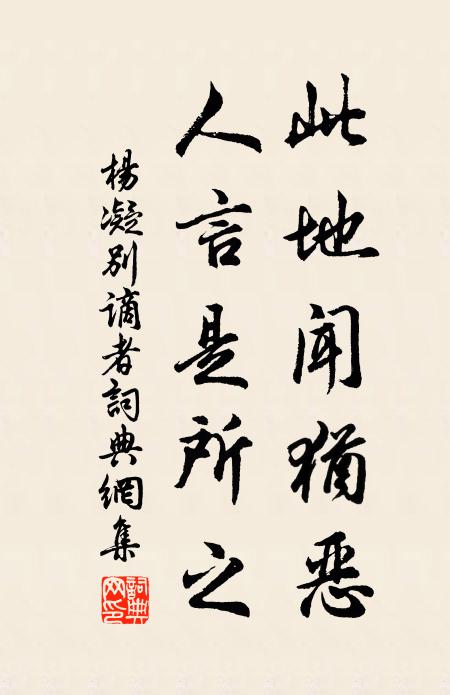 此地聞猶惡
人言是所之
楊凝別謫者詞典網集
詞典网印